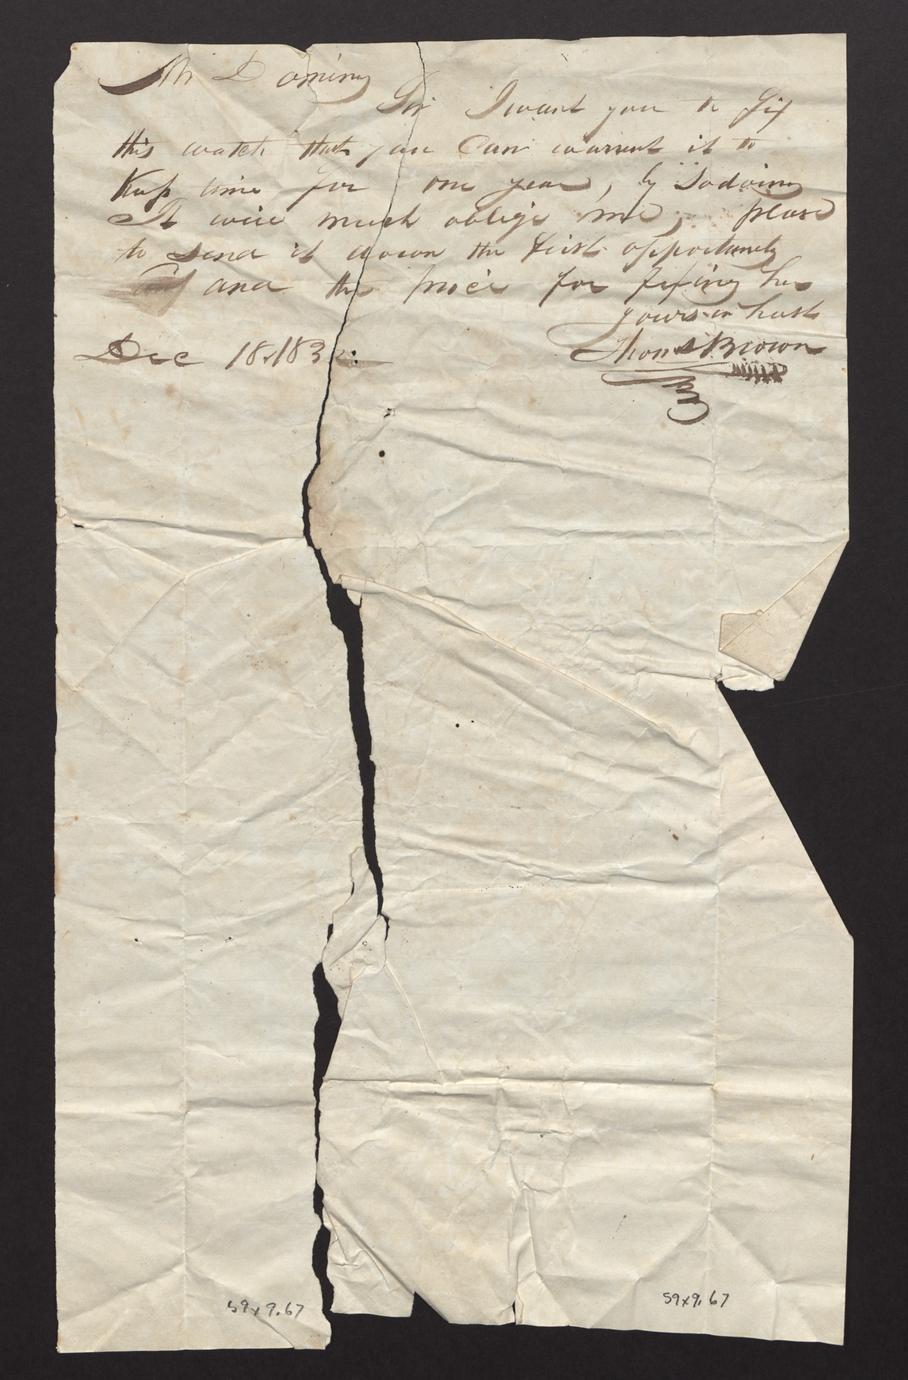 Mr Dominy
Sir I want you to fix
this watch that you Can warrent it to
Keep time for one year, by Sodoing
It will much oblige me. please
to send it down the first opportunity
and the price for fixing her
yours in hast
Dec 18, 183
Thoms Brown
59x9.67 59x9.67